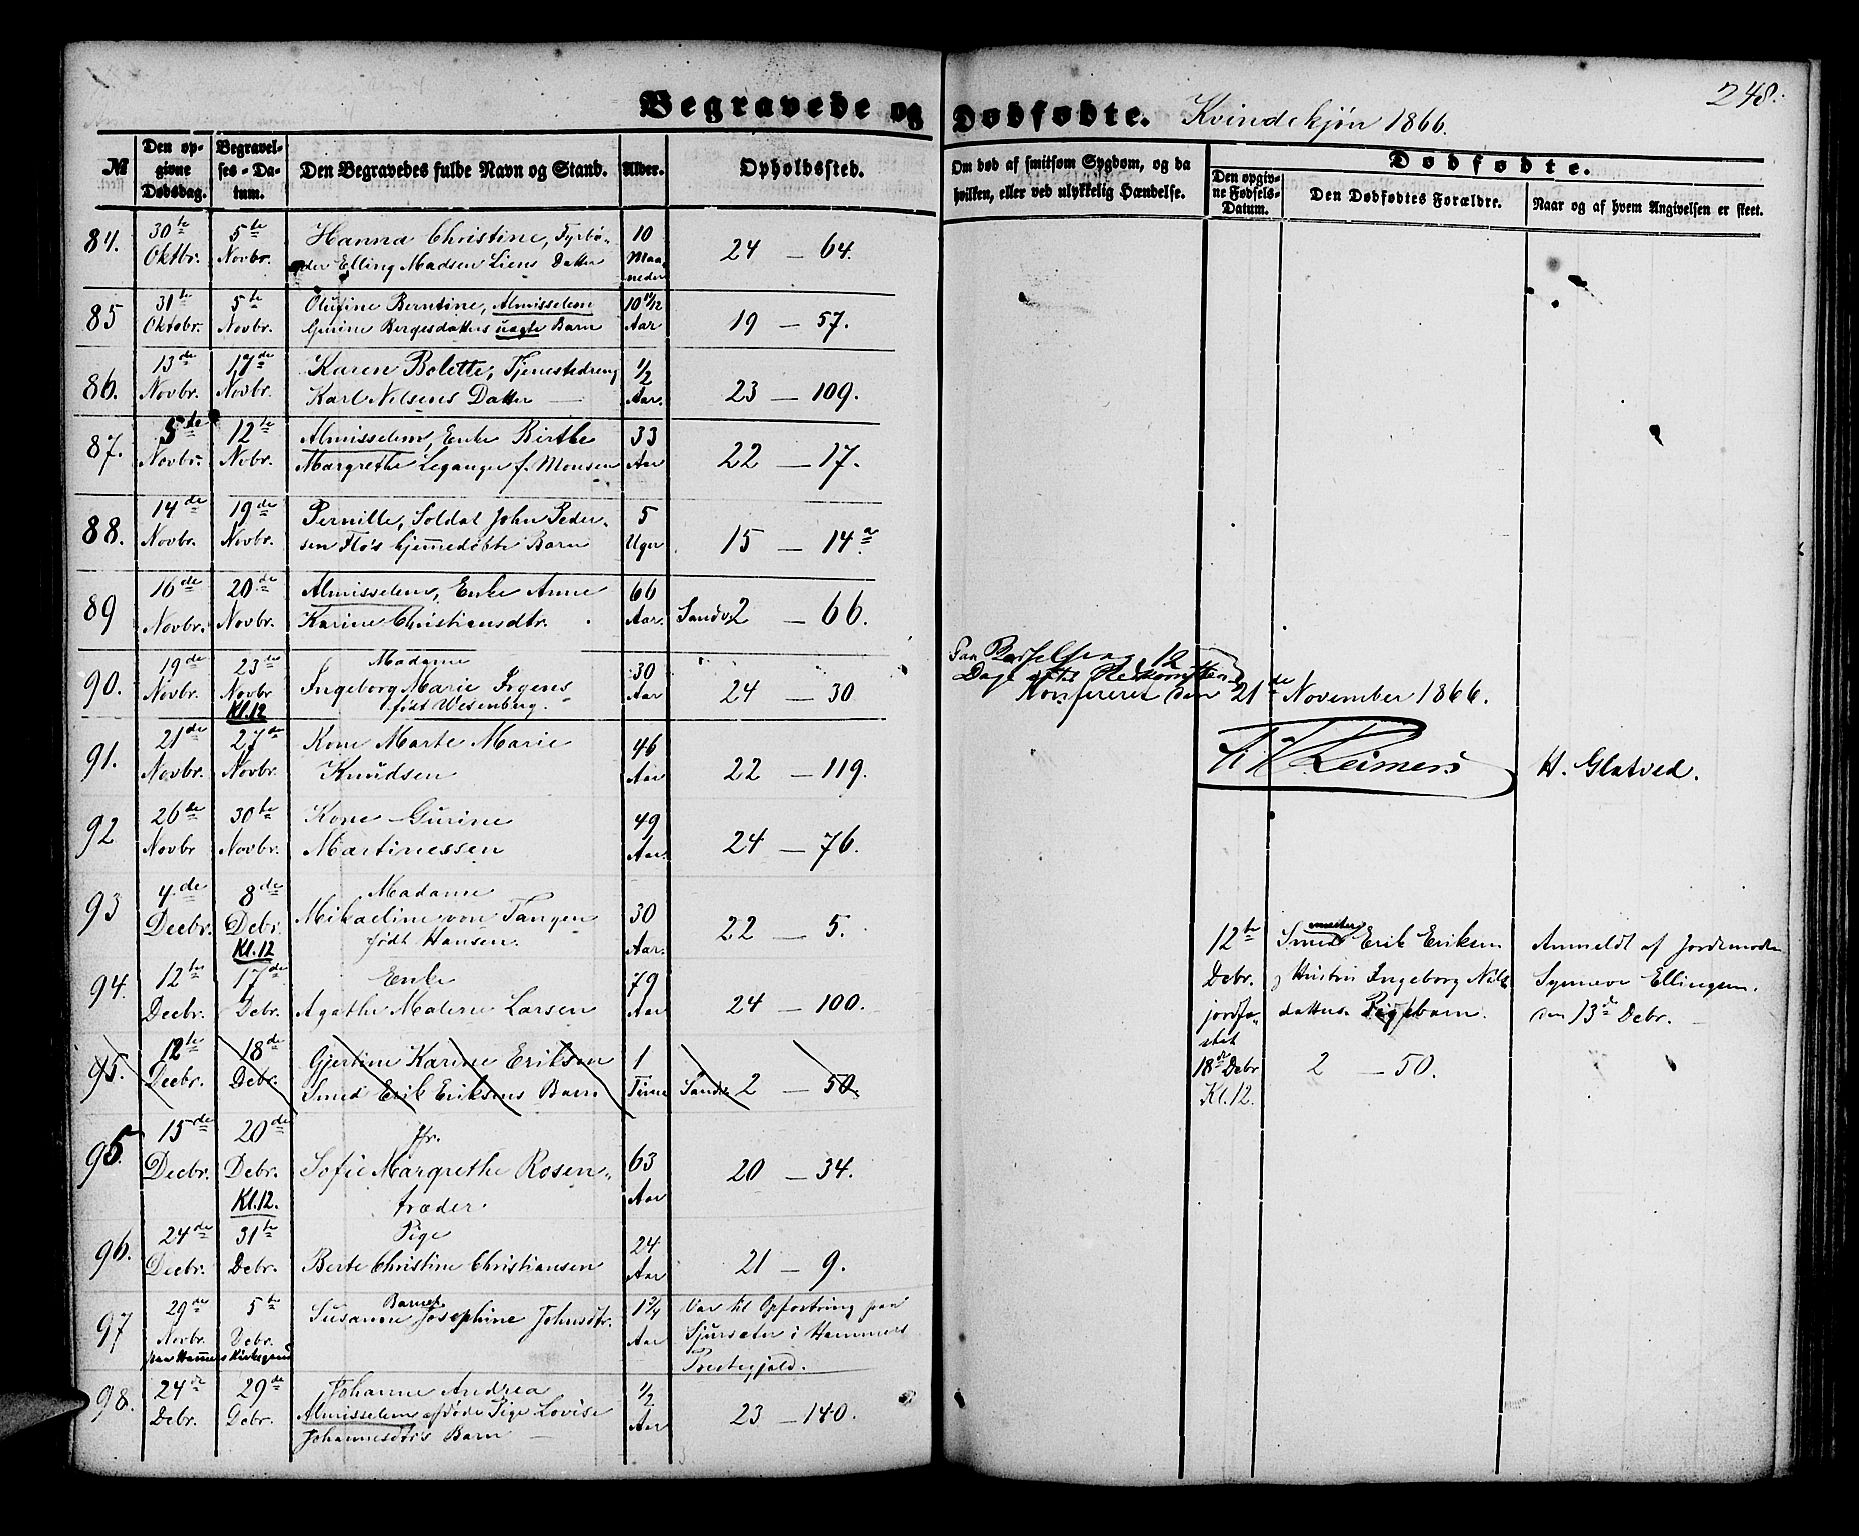 248.
Begravede og Dødfødte. Kvindekjøn 1866.
№ | Den opgivne Dødsdag. | Begravelses-Datum. | Den Begravedes fulde Navn og Stand. | Alder. | Opholdssted. | Om død af smitsom Sygdom, og da hvilken, eller ved ulykkelig Hændelse. | Dødfødte.
Den opgivne Fødsels-Datum. | Den Dødfødtes Forældre. | Naar og af hvem Angivelsen er skeet.
84. 30te Oktbr. 5te Novbr. Hanna Christine, Fyrbø-
der Elling Madsen Liens Datter 10 Maaneder 24 — 64.
85 31te Oktobr. 5te Novbr. Olufine Berntine, Almisselem
Gurine Bergesdatters uægte Barn 10 11/12 Aar 19 — 57.
86. 13de Novbr. 17de Novbr. Karen Bolette, Tjenestedreng
Karl Nilsens Datter — 1/2 Aar. 23 — 109.
87. 5te Novbr. 12te Nvbr. Almisselem, Enke Birthe
Margrethe Leganger f. Monsen 33 Aar 22 — 17.
88. 14de Novbr. 19de Novbr. Pernille, Soldat John Peder-
sen Flo's hjemmedøbte Barn 5 Uger 15 — 14a
89 16de Novbr. 20de Novbr. Almisselem, Enke Anne
Karine Christiansdtr. 66 Aar. Sandv. 2 — 66.
90. 19de Novbr. 23de Novbr Kl. 12 Madame
Ingeborg Marie Irgens
født Wesenberg. 30 Aar 24 — 30
Paa Barselseng, 12
Dage efter Nedkomsten
Konfereret den 21de November 1866.
91. 21de Novbr. 27de Novbr. Kone Marte Marie
Knudsen 46 Aar 22 — 119.
Reimers H. Glatved.
92 26de Novbr 30te Novbr. Kone Gurine
Martinessen 49 Aar. 24 — 76.
93 4de Decbr. 8de Debr. Kl. 12 Madame
Mikaeline von Tangen
født Hansen. 30 Aar. 22 — 5.
94. 12te Decbr. 17de Debr. Enke
Agathe Malene Larsen 79 Aar 24 — 100.
12te Debr. jordfæstet 18de Debr Kl. 12.
Smedmester Erik Eriksen
og Hustru Ingeborg Nils-
datters Pigebarn.
2 — 50.
Anmeldt af Jordemoder
Synneve Ellingsen.
den 13de Debr. —
95. 12te Decbr. 18de Debr. Gjertine Karine Eriksen
Smed Erik Eriksens Barn 1 Time Sandv. 2 — 50.
95. 15de Decbr. 20de Debr. Kl. 12. Jfr.
Sofie Margrethe Rosen-
træder. 63 Aar 20 — 34.
96. 24de Decbr. 31te Debr. Pige
Berte Christine Christiansen 24 Aar 21 — 9.
97 29de Novbr. 5te Debr. paa Hammers Kirkegaard Barnet
Susanne Josephine Johnsdtr. 1 3/4 Aar Var til Opfostring paa
Sjursæter i Hammers
Prestegjeld.
98. 24de Debr. 29de Debr. Johanne Andrea
Almisselem afdøde Pige Lovise
Johannesdtr's Barn — 1/2 Aar 23 — 140.